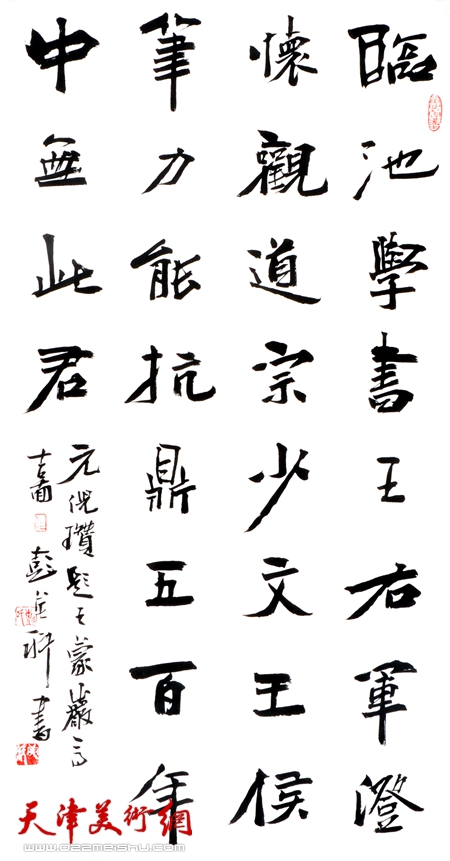 臨池學書王右軍澄
懷觀道宗少文王侯
筆力能抗鼎五百年
中無此君
元倪瓚題王蒙巖高
士圖
彭英科書
天津美術網
www.022meishu.com